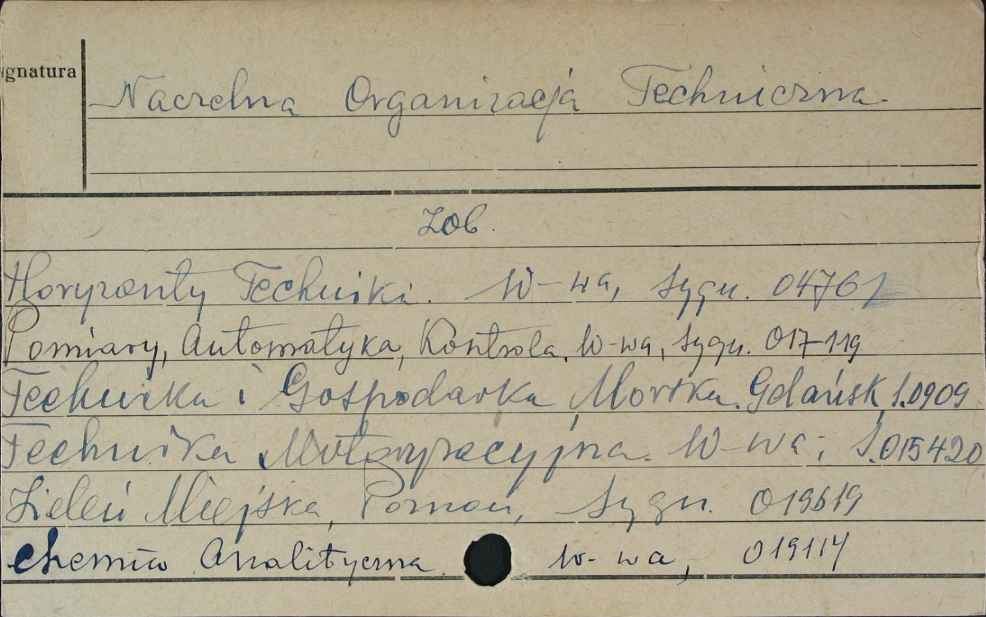 ignatura
Naczelna Organizacja Techniczna.
Zob.
Horyzonty Techniki. W-wa, Sygn. 04761
Pomiary, Automatyka, Kontrola, W-wa, Sygn. 017119
Technika i Gospodarka Morska. Gdańsk, S.0909
Technika Motoryzacyjna. W-wa; S.015420
Zieleń Miejska, Poznań, Sygn. 019619
Chemia Analityczna. W-wa, 019114